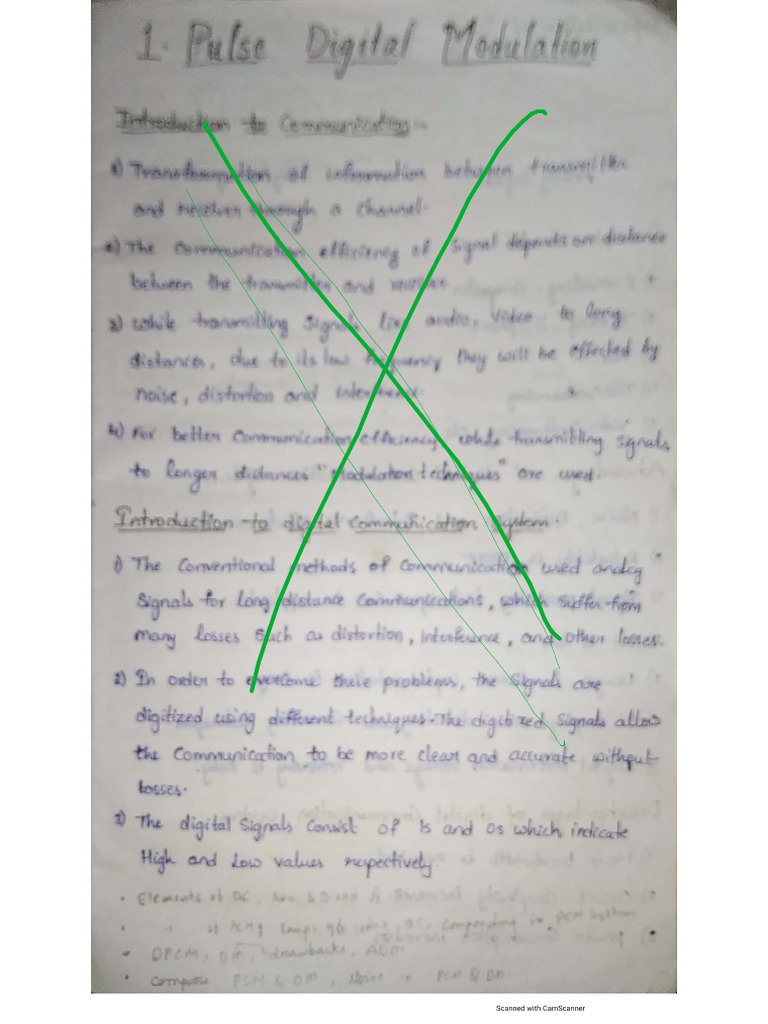 1. Pulse Digital Modulation
Introduction to Communication:-
1) Transformation of information between transmitter
and receiver through a channel.
2) The Communication efficiency of signal depends on distance
between the transmitter and receiver
3) While transmitting signals like audio, video to long
distances, due to its low frequency they will be effected by
noise, distortion and interference.
4) For better Communication efficiency while transmitting signals
to longer distances "Modulation techniques" are used.
Introduction to digital Communication System:
1) The Conventional methods of Communication used analog
signals for long distance Communications, which suffer from
many losses such as distortion, interference, and other losses.
2) In order to overcome these problems, the signals are
digitized using different techniques. The digitized signals allow
the Communication to be more clear and accurate without
losses.
3) The digital signals consist of 1s and 0s which indicate
High and Low values respectively.
• Elements of DC,
• " of PCM, Companding in PCM system
- DPCM, DM, drawbacks, ADM
• Compare PCM & DM, Noise in PCM & DM.
Scanned with CamScanner